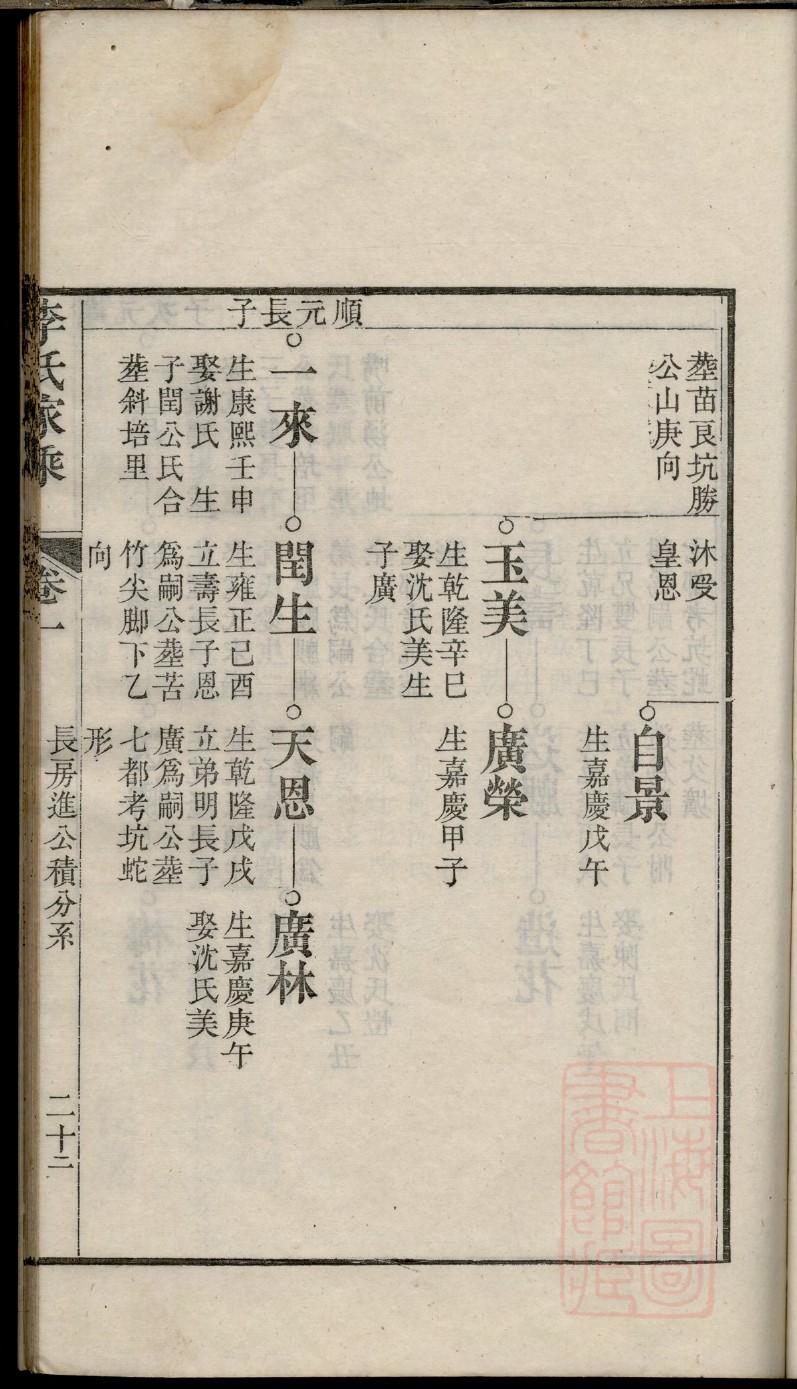 葬苗良坑勝
公山庚向
沐受
皇恩
自景
生嘉慶戊午
玉美
生乾隆辛巳
娶沈氏美生
子廣
廣榮
生嘉慶甲子
順元長子
一來
生康熙壬申
娶謝氏　生
子閏公氏合
葬斜培里
閏生
生雍正己酉
立壽長子恩
爲嗣公葬苦
竹尖脚下乙
向
天恩
生乾隆戊戌
立弟明長子
廣爲嗣公葬
七都考坑蛇
形
廣林
生嘉慶庚午
娶沈氏美
李氏家乘
卷一
長房進公積分系
二十二
上海圖
書館藏